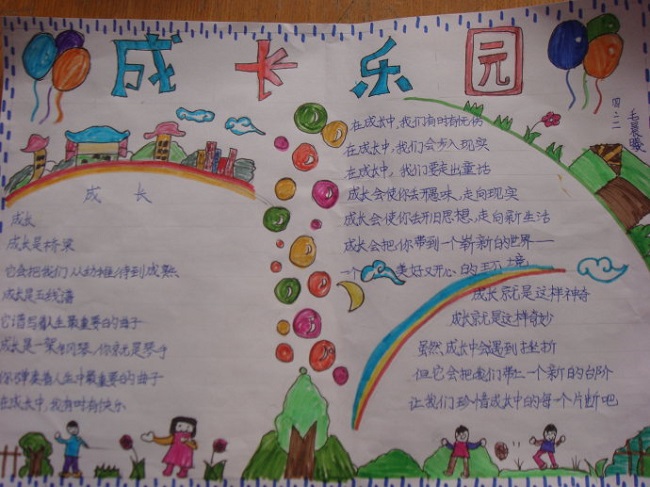 成长乐园
四二
成长
成长
成长是桥梁
它会把我们从幼稚得到成熟
成长是五线谱
它谱写着人生最重要的曲子
成长是一架钢琴,你就是琴手
你弹奏着人生中最重要的曲子
在成长中,我有时有快乐
在成长中,我们有时有忧伤
在成长中,我们会步入现实
在成长中,我们要走出童话
成长会使你去愚昧,走向现实
成长会使你去旧思想,走向新生活
成长会把你带到一个崭新的世界——
一个美好又开心的环境
成长就是这样神奇
成长就是这样奇妙
虽然成长中会遇到挫折
但它会把我们带上一个新的台阶
让我们珍惜成长中的每个片断吧